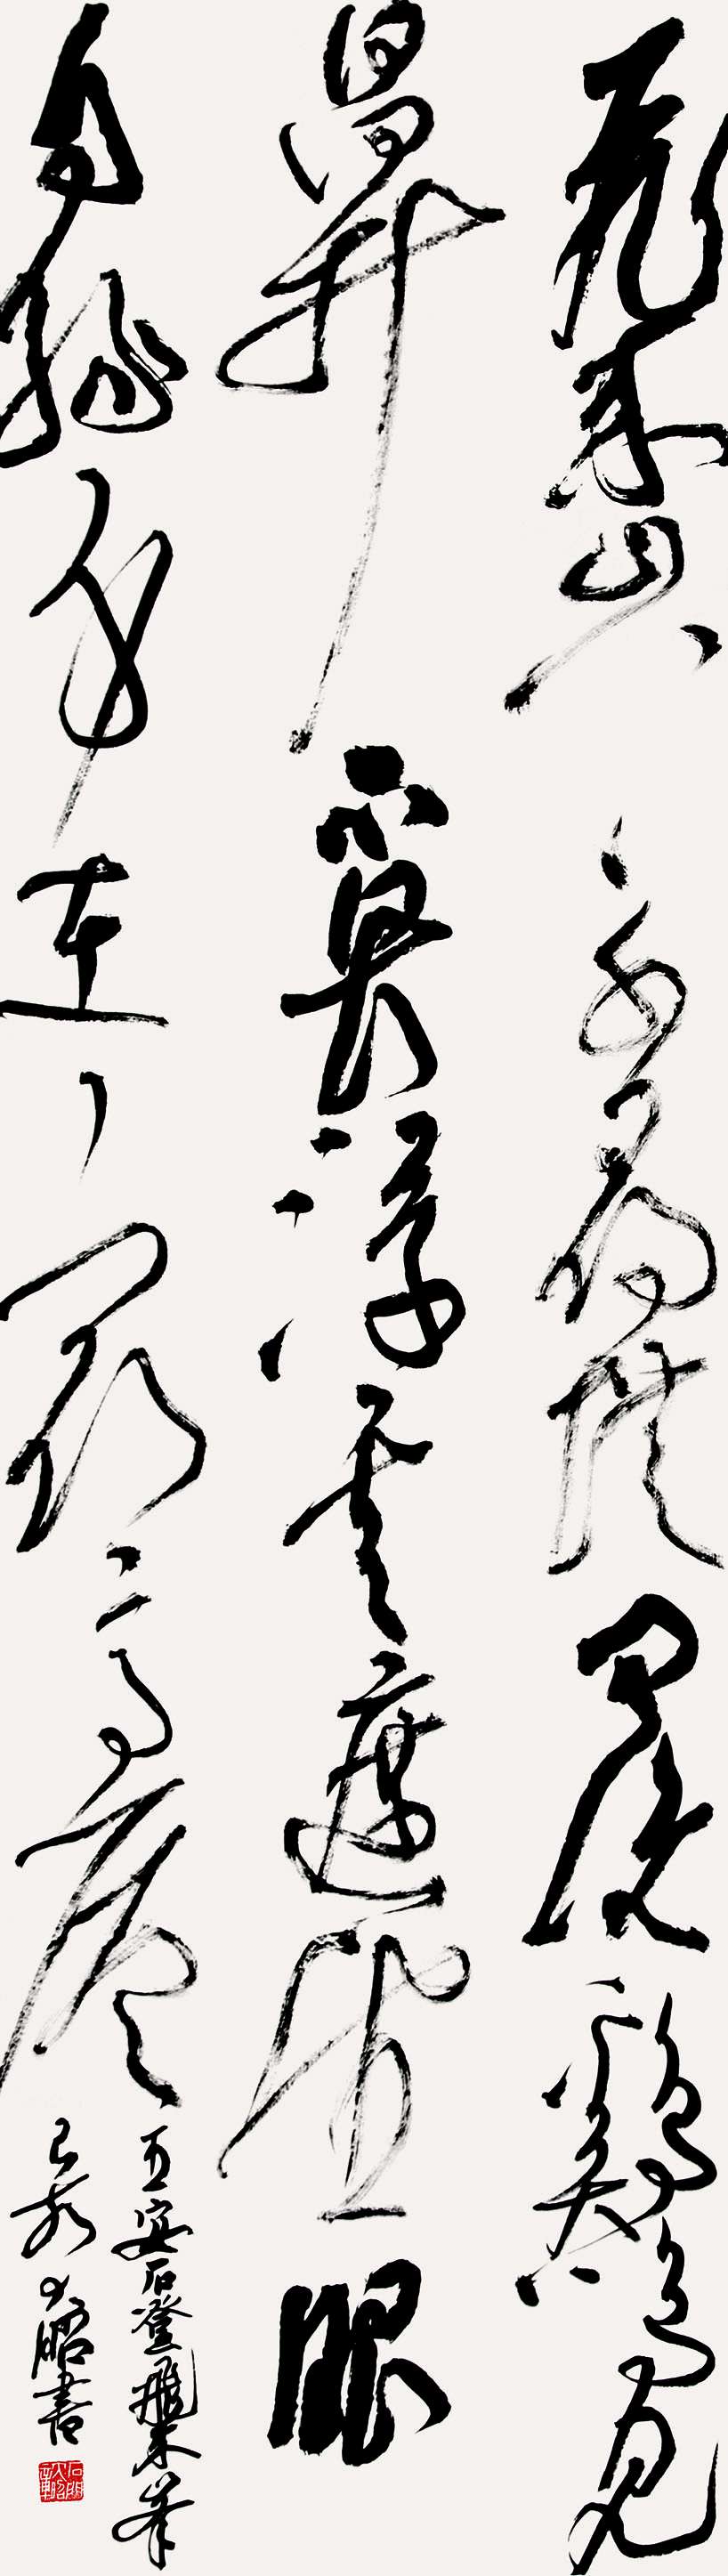 飛來山上千尋塔聞說鷄鳴見
日昇不畏浮雲遮望眼
自緣身在最高層
王安石登飛來峯
己亥 昭書